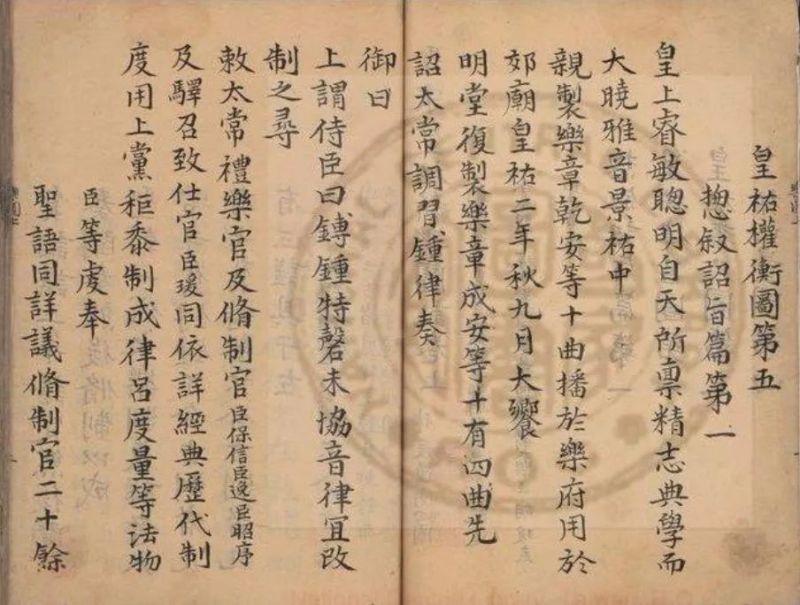 皇祐權衡圖第五
揔敘詔旨篇第一
皇上睿敏聰明自天所稟精志典學而
大曉雅音景祐中
親製樂章乾安等十曲播於樂府用於
郊廟皇祐二年秋九月大饗
明堂復製樂章成安等十有四曲先
詔太常調習鍾律奏
御日
上謂侍臣曰鎛鍾特磬未協音律宜改
制之尋
敕太常禮樂官及脩制官臣保信臣逸臣昭序
及驛召致仕官臣瑗同依詳經典歷代制
度用上黨秬黍制成律呂度量等法物
臣等虔奉
聖語同詳議脩制官二十餘